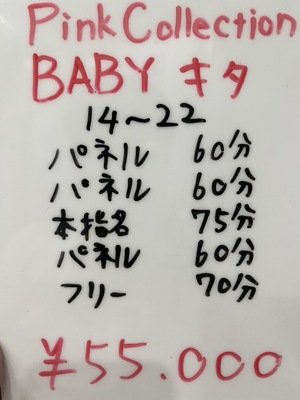 Pink Collection
BABY キタ
14〜22
パネル 60分
パネル 60分
本指名 75分
パネル 60分
フリー 70分
¥55.000